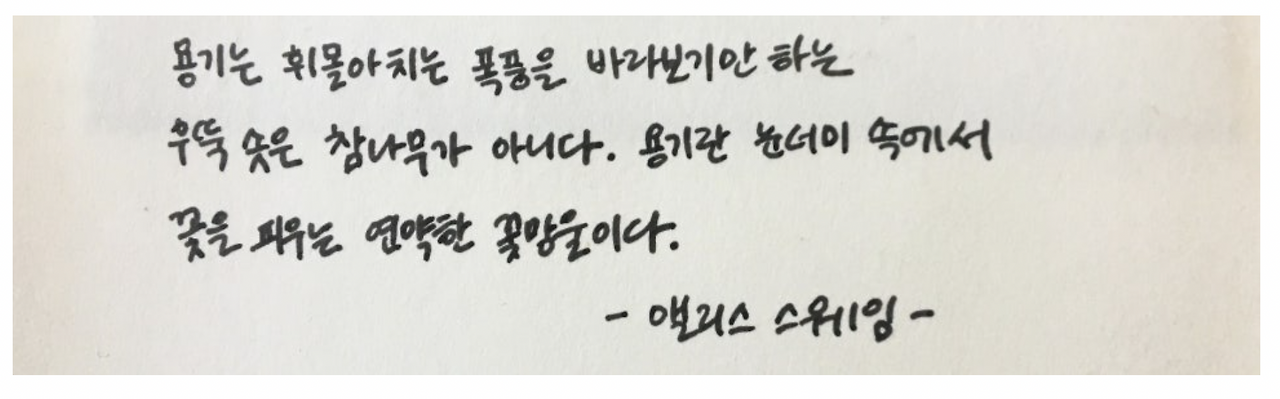 용기는 휘몰아치는 폭풍을 바라보기만 하는
우뚝 솟은 참나무가 아니다. 용기란 눈더미 속에서
꽃을 피우는 연약한 꽃망울이다.
- 앨리스 스웨임 -